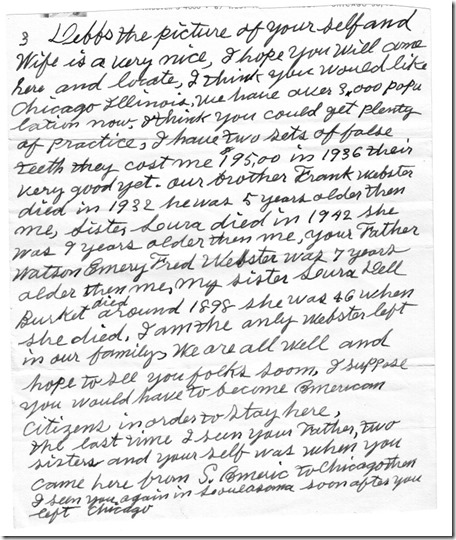 3 Debbs the picture of your self and
Wife is a very nice, I hope you will come
here and locate, I think you would like
Chicago Illinois, We have over 3,000 popu
lation now, I think you could get plenty
of practice, I have two sets of false
teeth they cost me $195,00 in 1936 their
very good yet. our brother Frank Webster
died in 1932 he was 5 years older then
me, Sister Lura died in 1942 she
was 9 years older then me, your Father
Watson Emery Fred Webster was 7 years
older then me, my sister Lura Dell
Burket died around 1898 she was 46 when
she died, I am the only Webster left
in our family, We are all well and
hope to see you folks soon, I suppose
you would have to become American
Citizens in order to stay here,
the last time I seen your Father, two
sisters and your self was when you
came here from S. Americ to Chicago then
I seen you again in soon after you
left Chicago